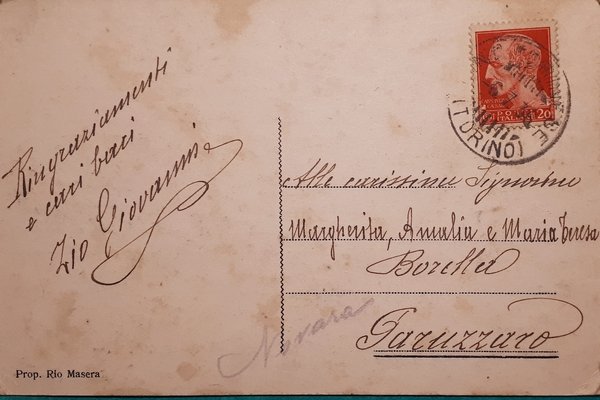 Ringraziamenti
e cari baci
Zio Giovanni
Prop. Rio Masera
POSTE
ITALIANE
20
(TORINO)
Alle carissime Signorine
Margherita, Amalia e Maria Teresa
Borella
Paruzzaro
Novara